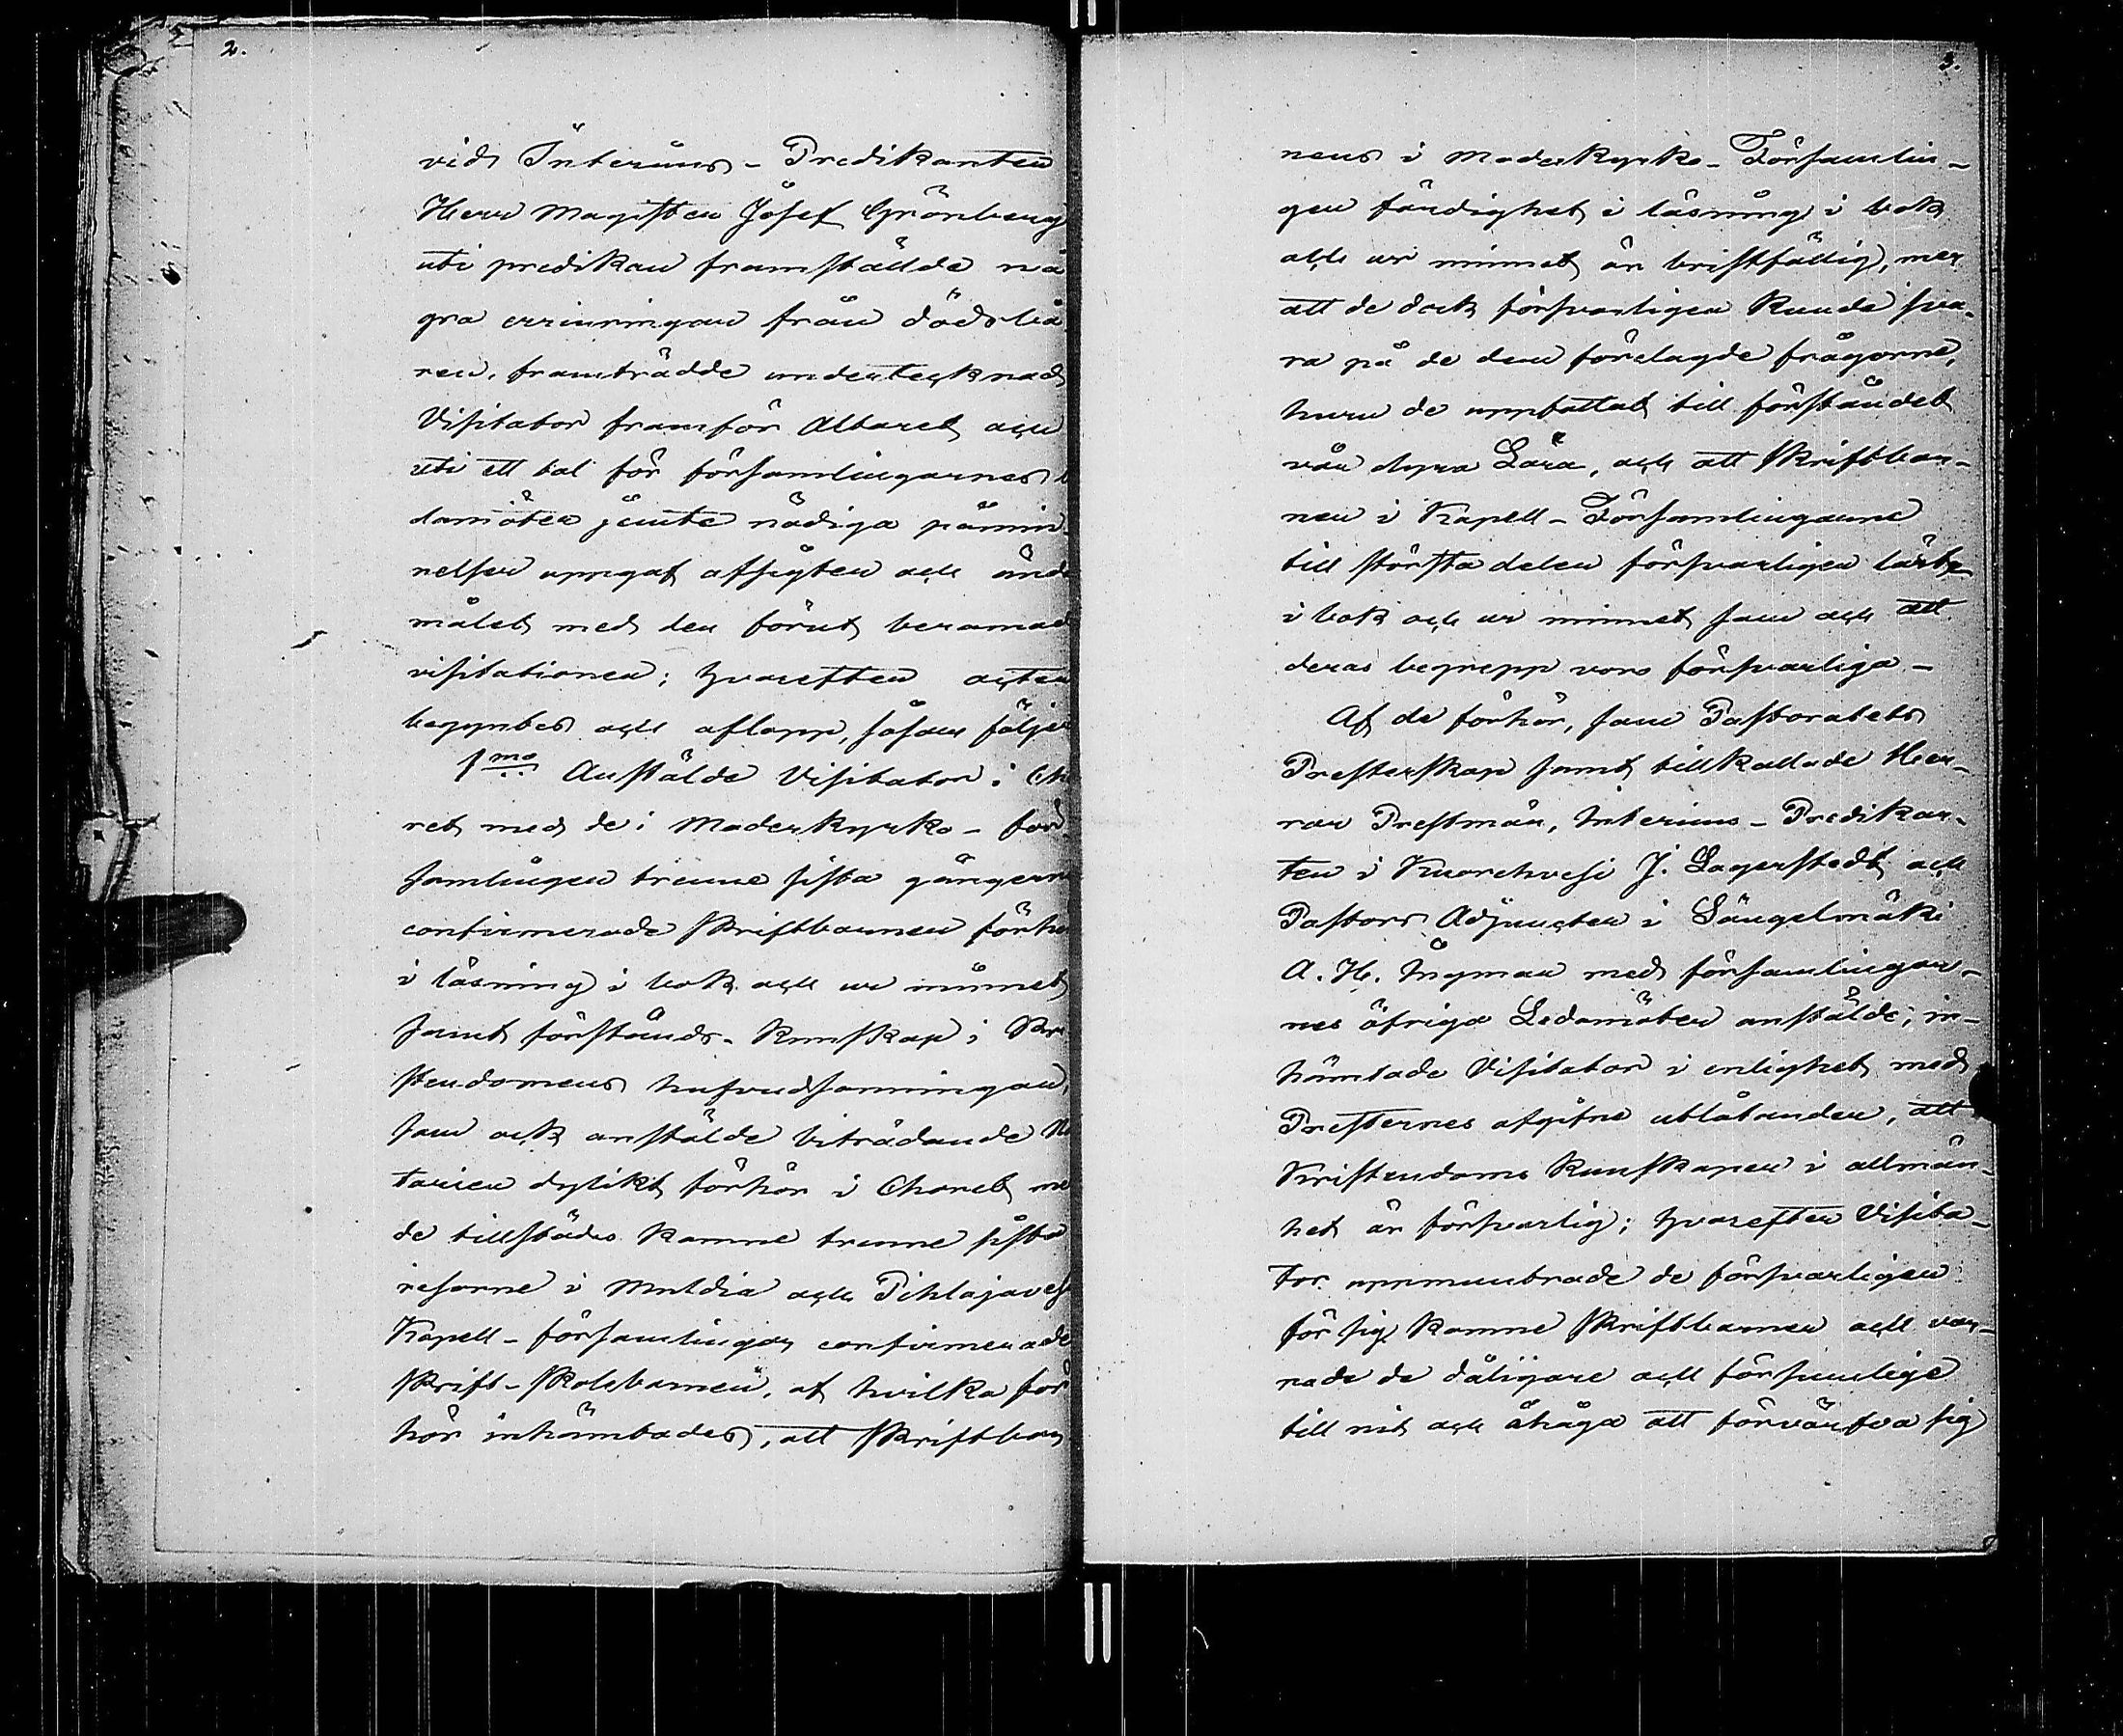 2.
vid Interims-Predikanten
Herr Magister Josef Grönberg
uti predikan framställde nå
gra erinringar från dödsbå
ren, framträdde undertecknad
Visitator framför Altaret och
uti ett tal för församlingarnes
damöter jemte nödiga påmin-
nelser uppgaf afsigten och ände
målet med den förut beramad
visitationen; hvarefter acten
begyntes och aflopp, såsom följer
1mo Anstälde Visitator i Cho
ret med de i Moderkyrko-för-
samlingen trenne sista gångerne
confirmerade skriftbarnen förhör
i läsning i bok och ur minnet
samt förstånds-kunskap i Kri
stendomens hufvudsanningar,
som ock anstälde biträdande No
tarien dylikt förhör i Choret me
de tillstädes komne trenne sista
resorne i Multia och Pihlajavesi
Kapell-församlingar confirmerade
skrift-skolebarnen, af hvilka för
hör inhämtades, att skriftbar
3.
nens i Moderkyrko-Församlin-
gen färdighet i läsning i bok
och ur minnet är bristfällig, men
att de dock försvarligen kunde sva-
ra på de dem förelagde frågorne,
huru de uppfattat till förståndet
vår dyra Lära, och att skriftbar-
nen i Kapell-Församlingarne
till största delen försvarligen läste
i bok och ur minnet som och att
deras begrepp voro försvarliga-
Af de förhör, som Pastoratets
Presterskap samt tillkallade Her-
rar Prestmän, Interims-Predikan-
ten i Kuorehvesi J. Lagerstedt och
Pastors Adjuncten i Längelmäki
A. H. Ingman med församlingar-
nes öfriga Ledamöter anstälde, in-
hämtade Visitator i enlighet med
Presternes afgifne utlåtanden, att
Kristendoms kunskapen i allmän-
het är försvarlig; hvarefter Visita-
tor uppmuntrade de försvarligen
för sig komne skriftbarnen och var-
nade de dåligare och försumlige
till nit och åhåga att förvärfva sig